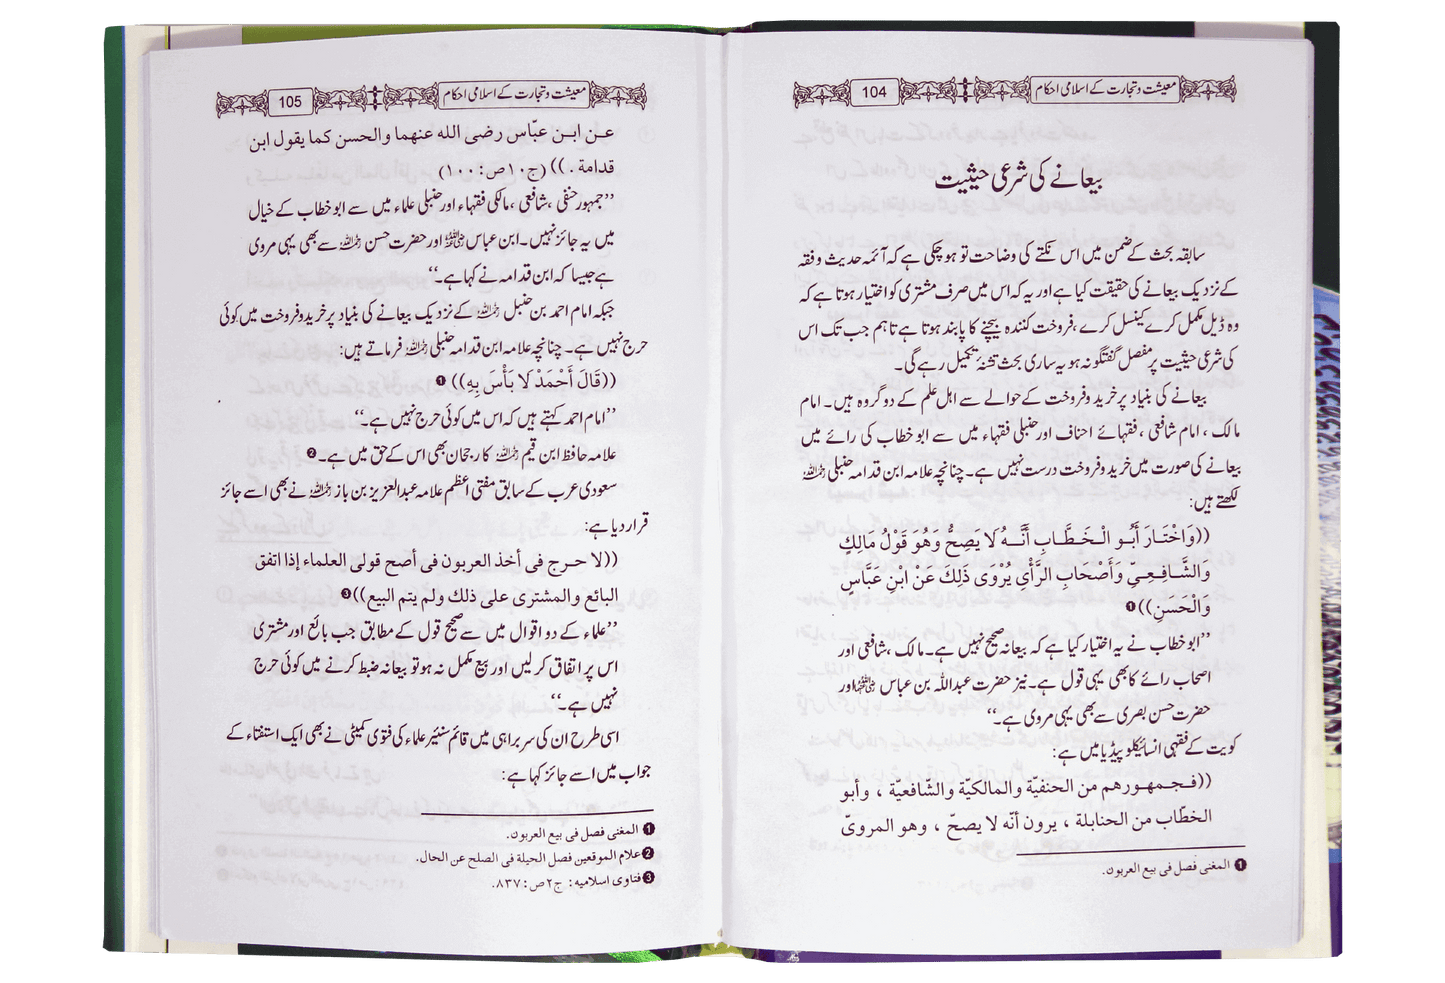 معیشت و تجارت کے اسلامی احکام
104
بیعانے کی شرعی حیثیت
سابقہ بحث کے ضمن میں اس نکتے کی وضاحت تو ہو چکی ہے کہ آئمہ حدیث و فقہ
کے نزدیک بیعانے کی حقیقت کیا ہے اور یہ کہ اس میں صرف مشتری کو اختیار ہوتا ہے کہ
وہ ڈیل مکمل کرے کینسل کرے، فروخت کنندہ بیچنے کا پابند ہوتا ہے تاہم جب تک اس
کی شرعی حیثیت پر مفصل گفتگو نہ ہو یہ ساری بحث تشنۂ تکمیل رہے گی۔
بیعانے کی بنیاد پر خرید و فروخت کے حوالے سے اهل علم کے دو گروہ ہیں۔ امام
مالک، امام شافعی، فقہائے احناف اور حنبلی فقہاء میں سے ابو خطاب کی رائے میں
بیعانے کی صورت میں خرید و فروخت درست نہیں ہے۔ چنانچہ علامہ ابن قدامہ حنبلی رحمہ اللہ
لکھتے ہیں:
((وَاخْتَارَ أَبُو الْخَطَّابِ أَنَّهُ لَا يَصِحُّ وَهُوَ قَوْلُ مَالِكٍ
وَالشَّافِعِيِّ وَأَصْحَابِ الرَّأْىِ يُرْوَى ذَلِكَ عَنْ ابْنِ عَبَّاسٍ
وَالْحَسَنِ))❶
’’ابوخطاب نے یہ اختیار کیا ہے کہ بیعانہ صحیح نہیں ہے۔ مالک، شافعی اور
اصحاب رائے کا بھی یہی قول ہے۔ نیز حضرت عبداللہ بن عباس رضی اللہ عنہما اور
حضرت حسن بصری سے بھی یہی مروی ہے۔‘‘
کویت کے فقہی انسائیکلوپیڈیا میں ہے:
((فجمهورهم من الحنفيّة والمالكيّة والشّافعيّة ، وأبو
الخطّاب من الحنابلة ، يرون أنّه لا يصحّ ، وهو المروىّ
❶ المغنی فصل فی بیع العربون.
معیشت و تجارت کے اسلامی احکام
105
عن ابن عبّاس رضى الله عنهما والحسن كما يقول ابن
قدامة .)) (ج۱۰ص:۱۰۰)
’’جمہور حنفی، شافعی، مالکی فقہاء اور حنبلی علماء میں سے ابو خطاب کے خیال
میں یہ جائز نہیں۔ ابن عباس رضی اللہ عنہما اور حضرت حسن رحمہ اللہ سے بھی یہی مروی
ہے جیسا کہ ابن قدامہ نے کہا ہے۔‘‘
جبکہ امام احمد بن حنبل رحمہ اللہ کے نزدیک بیعانے کی بنیاد پر خرید و فروخت میں کوئی
حرج نہیں ہے۔ چنانچہ علامہ ابن قدامہ حنبلی رحمہ اللہ فرماتے ہیں:
((قَالَ أَحْمَدُ لَا بَأْسَ بِهِ))❶
’’امام احمد کہتے ہیں کہ اس میں کوئی حرج نہیں ہے۔‘‘
علامہ حافظ ابن قیم رحمہ اللہ کا رجحان بھی اس کے حق میں ہے۔❷
سعودی عرب کے سابق مفتی اعظم علامہ عبدالعزیز بن باز رحمہ اللہ نے بھی اسے جائز
قرار دیا ہے:
((لا حرج فى أخذ العربون فى أصح قولى العلماء إذا اتفق
البائع والمشترى على ذلك ولم يتم البيع))❸
’’علماء کے دو اقوال میں سے صحیح قول کے مطابق جب بائع اور مشتری
اس پر اتفاق کر لیں اور بیع مکمل نہ ہو تو بیعانہ ضبط کرنے میں کوئی حرج
نہیں ہے۔‘‘
اسی طرح ان کی سربراہی میں قائم سنئیر علماء کی فتوی کمیٹی نے بھی ایک استفتاء کے
جواب میں اسے جائز کہا ہے:
❶ المغنی فصل فی بیع العربون.
❷ علام الموقعین فصل الحیلة فی الصلح عن الحال.
❸ فتاوی اسلامیه: ج۲ ص:۸۳۷.